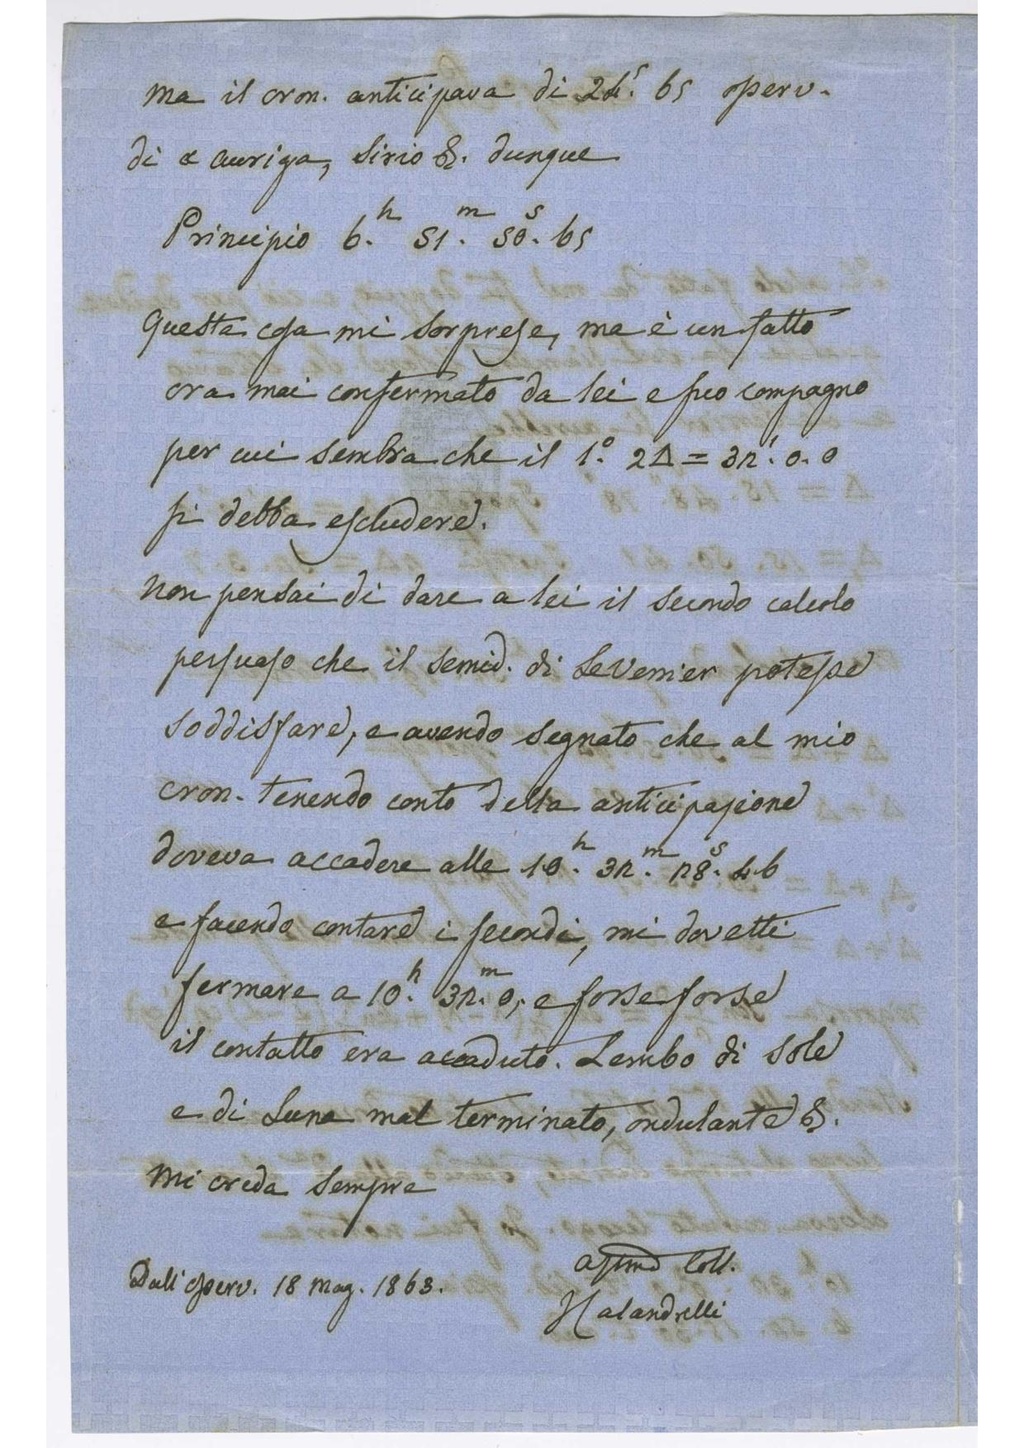 ma il cron. anticipava di 24.ˢ 65 operv.
di α auriga, Sirio &. dunque
Principio 6.ʰ 51.ᵐ 50.ˢ 65
Questa cosa mi sorprese, ma è un fatto
ora mai confermato da lei e suo compagno
per cui sembra che il 1.° 2Δ = 32'. 0. 0
si debba escludere.
Non pensai di dare a lei il secondo calcolo
persuaso che il semid. di LeVerrier potesse
soddisfare, e avendo segnato che al mio
cron. tenendo conto della anticipazione
doveva accadere alle 10.ʰ 32.ᵐ 28.ˢ 46
e facendo contare i secondi, mi dovetti
fermare a 10.ʰ 32.ᵐ 0, e forse forse
il contatto era accaduto. Lembo di sole
e di Luna mal terminato, ondulante &.
Mi creda sempre
Dall'operv. 18 mag. 1863.
Coll.
Calandrelli